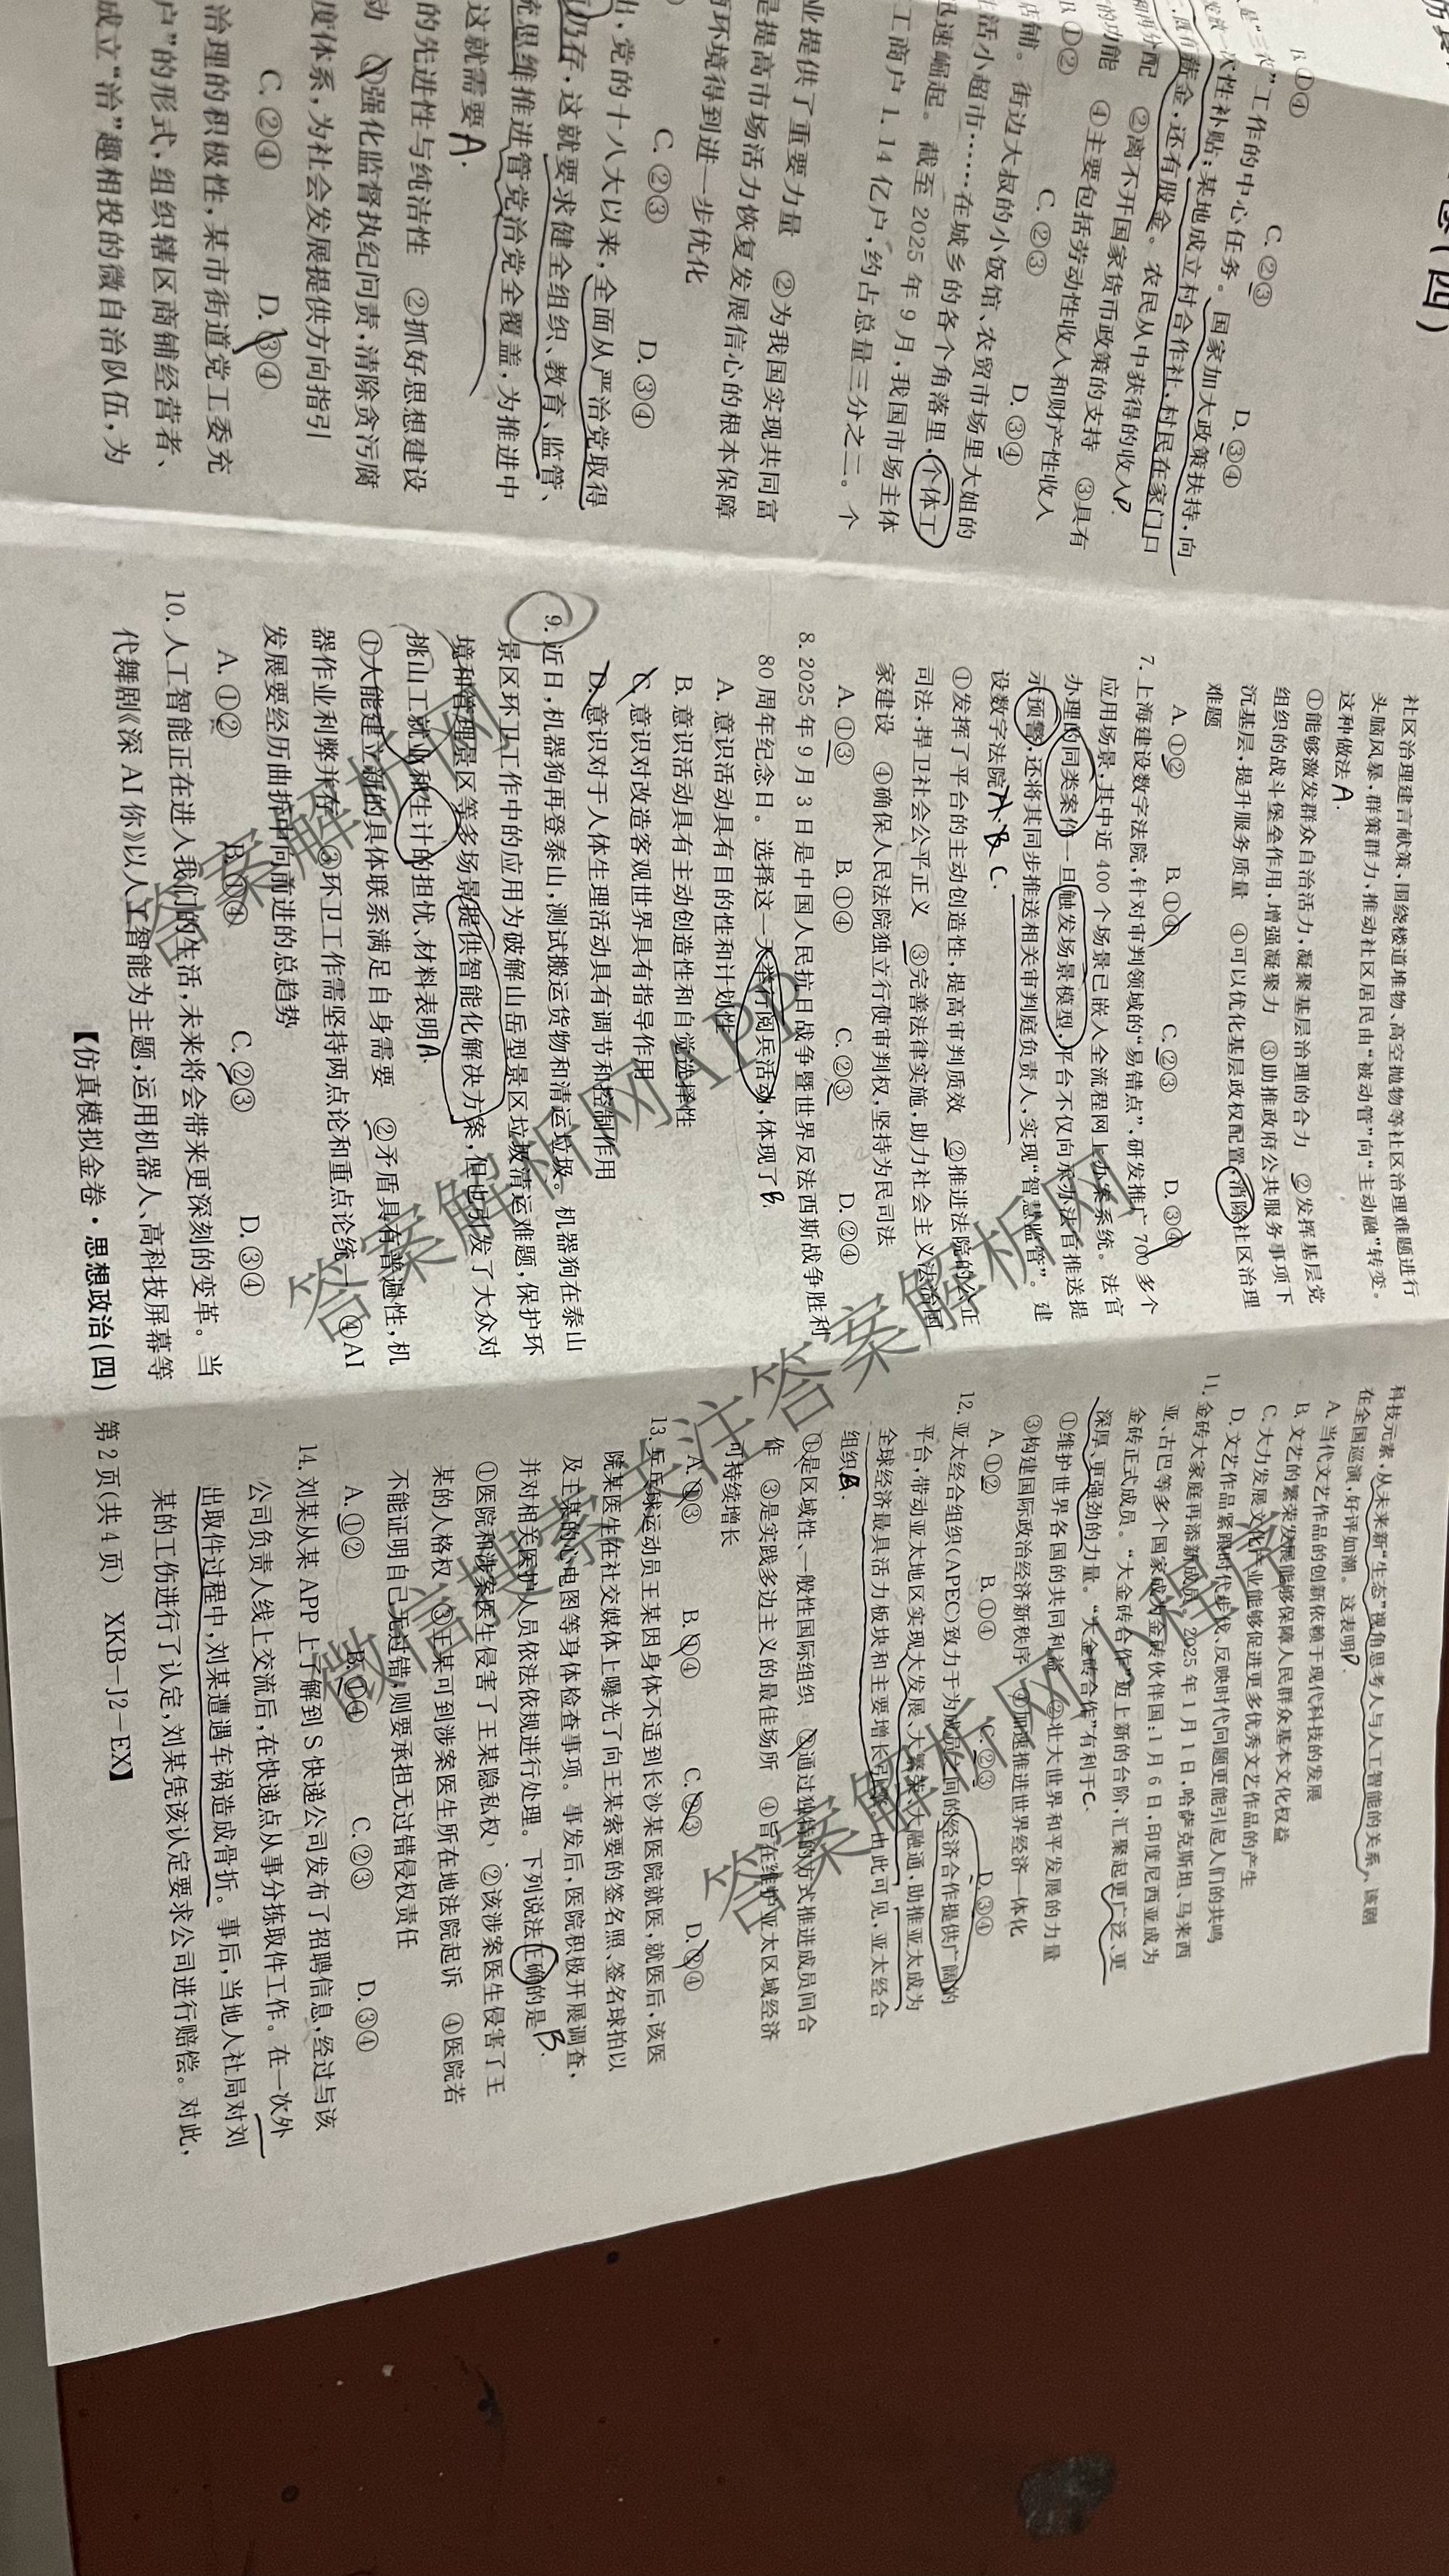 卷(四)
B.①④
C.②③
D.③④
是“三农”工作的中心任务。国家加大政策扶持,向
发放一次性补贴;某地成立村合作社,村民在家门口
薪金,还有股金。农民从中获得的收入D.
和再分配 ②离不开国家货币政策的支持 ③具有
的功能 ④主要包括劳动性收入和财产性收入
B.①②
C.②③
D.③④
店铺。街边大叔的小饭馆、农贸市场里大姐的
活小超市……在城乡的各个角落里,个体工
迅速崛起。截至2025年9月,我国市场主体
工商户1.14亿户,约占总量三分之二。个
业提供了重要力量 ②为我国实现共同富
是提高市场活力恢复发展信心的根本保障
环境得到进一步优化
C.②③
D.③④
出,党的十八大以来,全面从严治党取得
仍存,这就要求健全组织、教育、监管、
统思维推进管党治党全覆盖,为推进中
这就需要A.
的先进性与纯洁性 ②抓好思想建设
动 ③强化监督执纪问责,清除贪污腐
度体系,为社会发展提供方向指引
C.②④
D.③④
治理的积极性,某市街道党工委充
户”的形式,组织辖区商铺经营者、
成立“治”趣相投的微自治队伍,为
社区治理建言献策、围绕楼道堆物、高空抛物等社区治理难题进行
头脑风暴,群策群力,推动社区居民由“被动管”向“主动融”转变。
这种做法A.
①能够激发群众自治活力,凝聚基层治理的合力 ②发挥基层党
组织的战斗堡垒作用,增强凝聚力 ③助推政府公共服务事项下
沉基层,提升服务质量 ④可以优化基层政权配置,消除社区治理
难题
A.①② B.①④ C.②③ D.③④
7.上海建设数字法院,针对审判领域的“易错点”,研发推广700多个
应用场景,其中近400个场景已嵌入全流程网上办案系统。法官
办理的同类案件一旦触发场景模型,平台不仅向承办法官推送提
示预警,还将其同步推送相关审判庭负责人,实现“智慧监管”。建
设数字法院C.
①发挥了平台的主动创造性,提高审判质效 ②推进法院的公正
司法,捍卫社会公平正义 ③完善法律实施,助力社会主义法治国
家建设 ④确保人民法院独立行使审判权,坚持为民司法
A.①③ B.①④ C.②③ D.②④
8.2025年9月3日是中国人民抗日战争暨世界反法西斯战争胜利
80周年纪念日。选择这一天举行阅兵活动,体现了B.
A.意识活动具有目的性和计划性
B.意识活动具有主动创造性和自觉选择性
C.意识对改造客观世界具有指导作用
D.意识对于人体生理活动具有调节和控制作用
9.近日,机器狗再登泰山,测试搬运货物和清运垃圾。机器狗在泰山
景区环卫工作中的应用为破解山岳型景区垃圾清运难题,保护环
境和管理景区等多场景提供智能化解决方案,但也引发了大众对
挑山工就业和生计的担忧、材料表明A.
①人能建立新的具体联系满足自身需要 ②矛盾具有普遍性,机
器作业利弊并存 ③环卫工作需坚持两点论和重点论统一 ④AI
发展要经历曲折中向前进的总趋势
A.①② B.①④ C.②③ D.③④
10.人工智能正在进入我们的生活,未来将会带来更深刻的变革。当
代舞剧《深AI你》以人工智能为主题,运用机器人、高科技屏幕等
科技元素,从未来新“生态”视角思考人与人工智能的关系。该剧
在全国巡演,好评如潮。这表明D.
A.当代文艺作品的创新依赖于现代科技的发展
B.文艺的繁荣发展能够保障人民群众基本文化权益
C.大力发展文化产业能够促进更多优秀文艺作品的产生
D.文艺作品紧跟时代步伐、反映时代问题更能引起人们的共鸣
11.金砖大家庭再添新成员。2025年1月1日,哈萨克斯坦、马来西
亚、古巴等多个国家成为金砖伙伴国;1月6日,印度尼西亚成为
金砖正式成员。“大金砖合作”迈上新的台阶,汇聚起更广泛、更
深厚、更强劲的力量。“大金砖合作”有利于C.
①维护世界各国的共同利益 ②壮大世界和平发展的力量
③构建国际政治经济新秩序 ④加速推进世界经济一体化
A.①② B.①④ C.②③ D.③④
12.亚太经合组织(APEC)致力于为成员之间的经济合作提供广阔的
平台,带动亚太地区实现大发展、大繁荣、大融通,助推亚太成为
全球经济最具活力板块和主要增长引擎。由此可见,亚太经合
组织B.
①是区域性、一般性国际组织 ②通过独特的方式推进成员间合
作 ③是实践多边主义的最佳场所 ④旨在维护亚太区域经济
可持续增长
A.①③ B.①④ C.②③ D.②④
13.乒乓球运动员王某因身体不适到长沙某医院就医,就医后,该医
院某医生在社交媒体上曝光了向王某索要的签名照、签名球拍以
及王某的心电图等身体检查事项。事发后,医院积极开展调查,
并对相关医护人员依法依规进行处理。下列说法正确的是B.
①医院和涉案医生侵害了王某隐私权 ②该涉案医生侵害了王
某的人格权 ③王某可到涉案医生所在地法院起诉 ④医院若
不能证明自己无过错,则要承担无过错侵权责任
A.①② B.①④ C.②③ D.③④
14.刘某从某APP上了解到S快递公司发布了招聘信息,经过与该
公司负责人线上交流后,在快递点从事分拣取件工作。在一次外
出取件过程中,刘某遭遇车祸造成骨折。事后,当地人社局对刘
某的工伤进行了认定,刘某凭该认定要求公司进行赔偿。对此,
【仿真模拟金卷·思想政治(四) 第2页(共4页) XKB-J2-EX】
答案解析网
答案解析网APP
微信搜索关注答案解析网
答案解析网